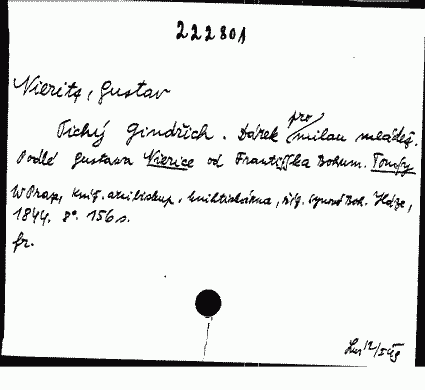 222801
Nieritz, Gustav
Tichý Gindřich. Dárek pro milau mládež.
Podlé Gustava Nierice od Františka Bohum. Tomsy
W Praze, Kniž. arcibiskup. knihtiskárna, řjz. synové Boh. Háze,
1844. 8°. 156 s.
fr.